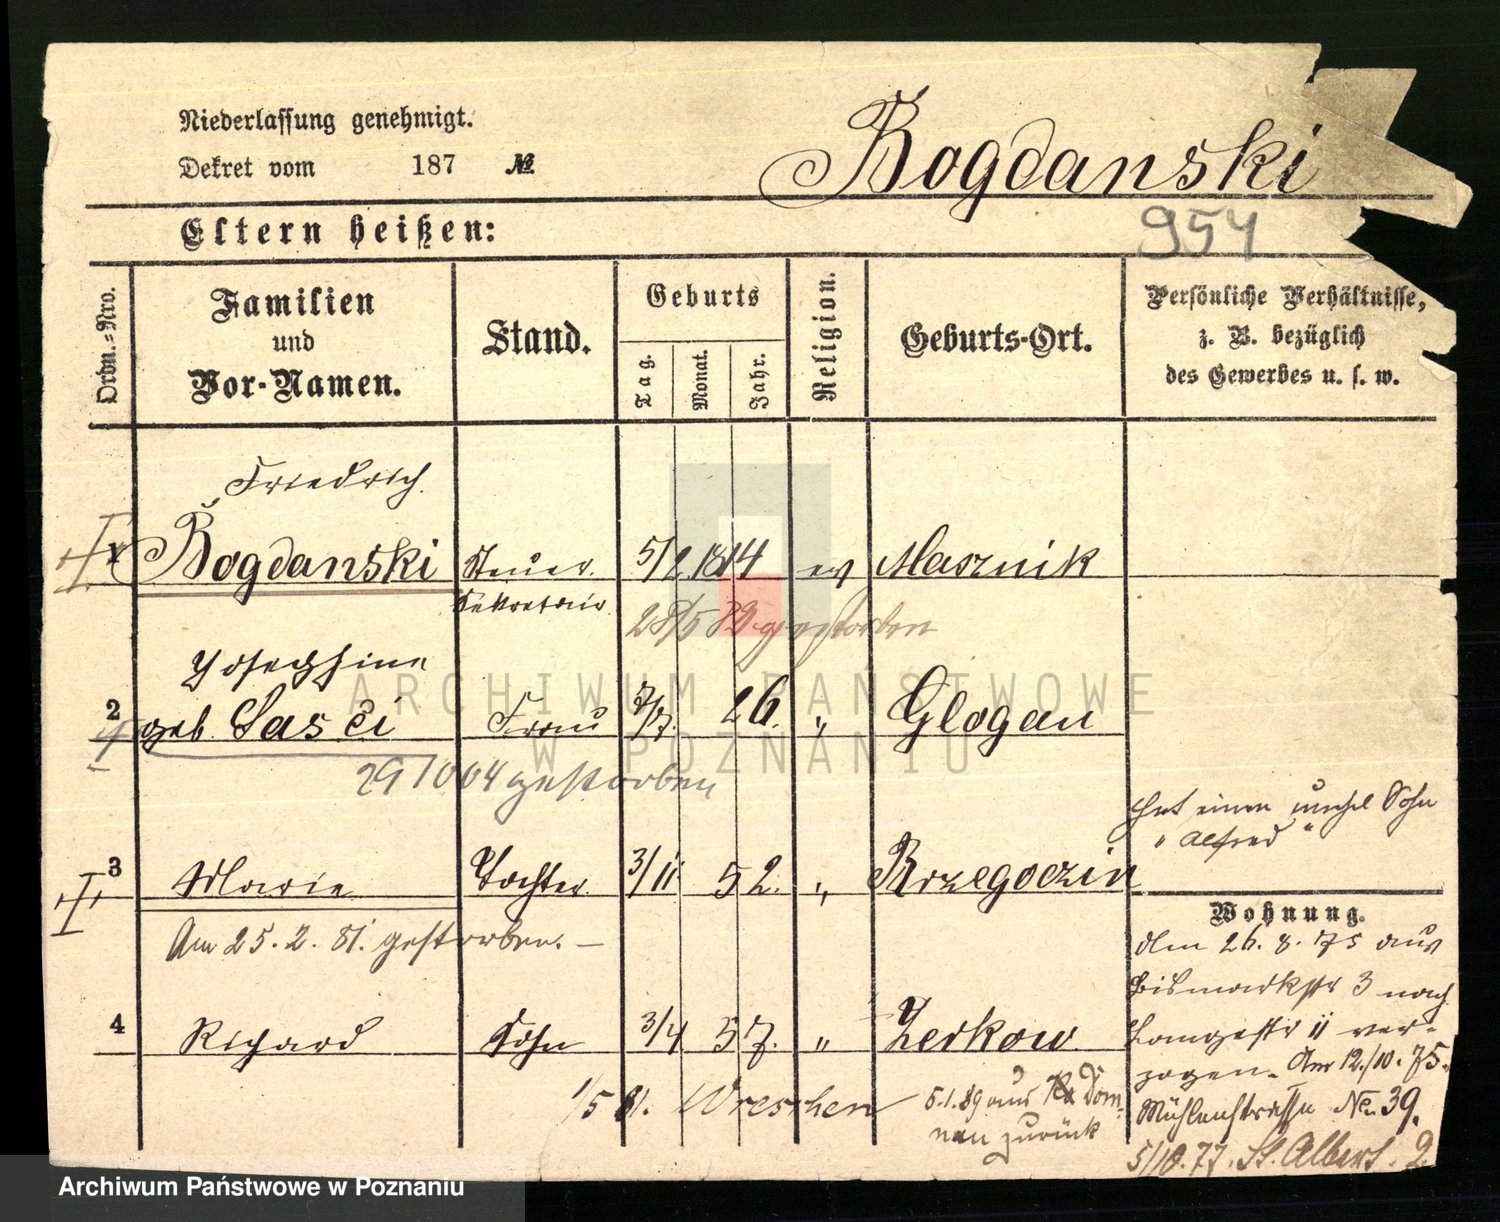 Niederlassung genehmigt.
Dekret vom 187 №
Bogdanski
954
Eltern heißen:
Ordn.=Nro.
Familien
und
Vor-Namen.
Stand.
Geburts
Tag.
Monat.
Jahr.
Religion.
Geburts-Ort.
Persönliche Verhältnisse,
z. B. bezüglich
des Gewerbes u. s. w.
Friedrich
1 Bogdanski Steuer. 5/2 1814 ev
Sekretair
28/5 89 gestorben
Josephine
2 geb. 7/7. 26. " Glogau
Frau
29 10 04 gestorben
hat einen unehel Sohn
"Alfred"
3 Marie Tochter 3/11 52. "
Am 25.2.81. gestorben. —
4 Richard Sohn 3/4 57. " Zerkow
1/5 81. Wreschen
5.1.89 aus Dom-
nau zurück
Wohnung.
Am 26.8.75 aus
Bismarkstr 3 nach
Langestr 11 ver-
zogen. Am 12./10.75.
Mühlenstrasse No 39.
5/10.77. St. Albert. 2
ARCHIWUM PAŃSTWOWE
W POZNANIU
Archiwum Państwowe w Poznaniu